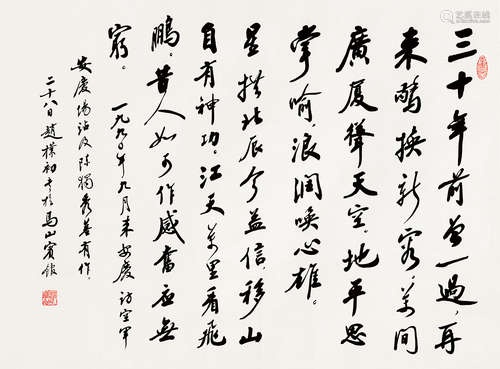 三十年前曾一過,再
来驚換新容。萬間
廣廈聳天空,地平思
掌喻,浪阔喚心雄。
星拱北辰今益信,移山
自有神功。江天萬里看飛
鵬,昔人如可作,感奮应無
窮。 一九九〇年九月来安慶访空軍
安慶场站及陈獨秀墓有作。
二十八日趙樸初书於馬山賓馆